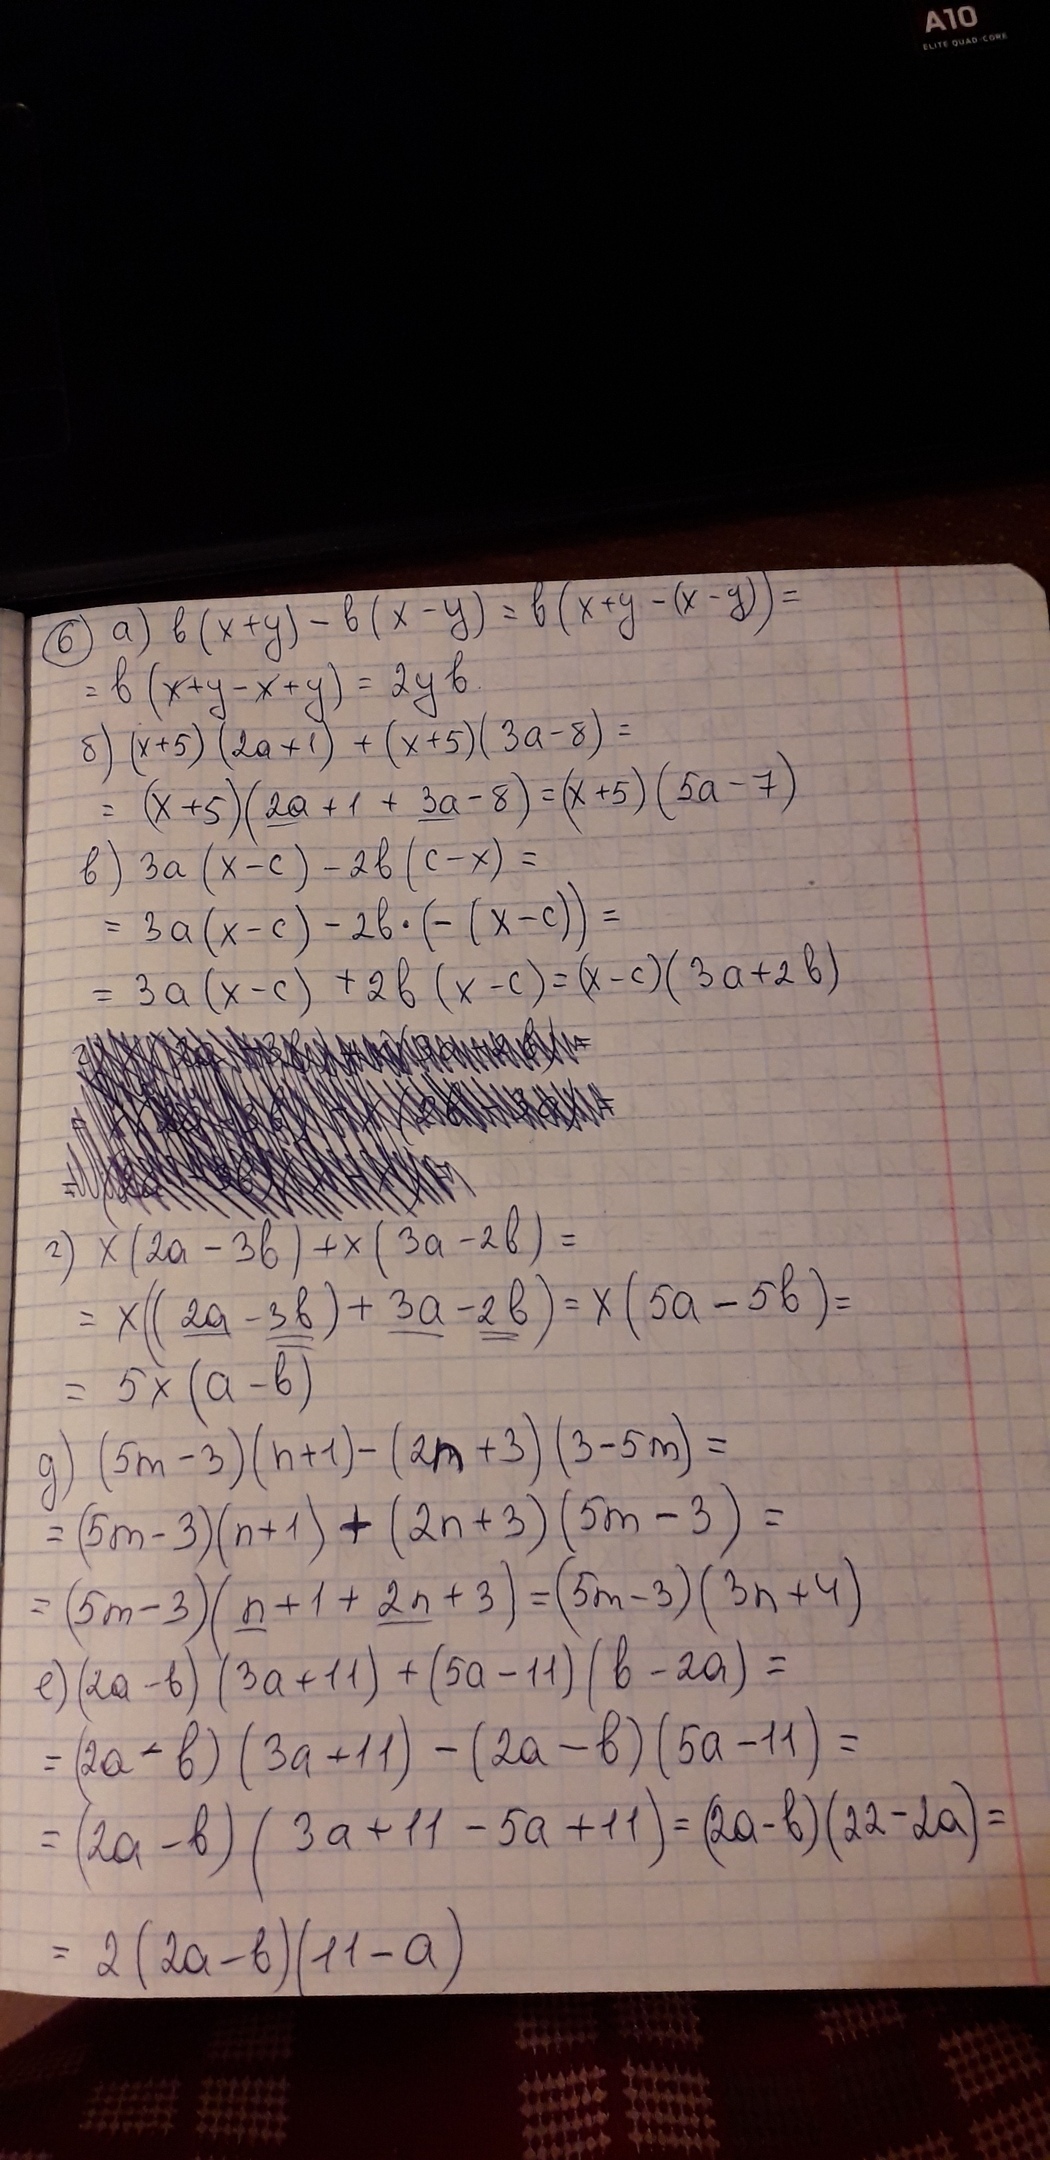 A10
ELITE QUAD-CORE
6) а) b(x+y) - b(x-y) = b(x+y-(x-y)) =
= b(x+y-x+y) = 2yb
б) (x+5)(2a+1) + (x+5)(3a-8) =
= (x+5)(2a+1+3a-8) = (x+5)(5a-7)
в) 3a(x-c) - 2b(c-x) =
= 3a(x-c) - 2b·(-(x-c)) =
= 3a(x-c) + 2b(x-c) = (x-c)(3a+2b)
г) x(2a-3b) + x(3a-2b) =
= x((2a-3b) + 3a-2b) = x(5a-5b) =
= 5x(a-b)
д) (5m-3)(n+1) - (2n+3)(3-5m) =
= (5m-3)(n+1) + (2n+3)(5m-3) =
= (5m-3)(n+1+2n+3) = (5m-3)(3n+4)
е) (2a-b)(3a+11) + (5a-11)(b-2a) =
= (2a-b)(3a+11) - (2a-b)(5a-11) =
= (2a-b)(3a+11-5a+11) = (2a-b)(22-2a) =
= 2(2a-b)(11-a)